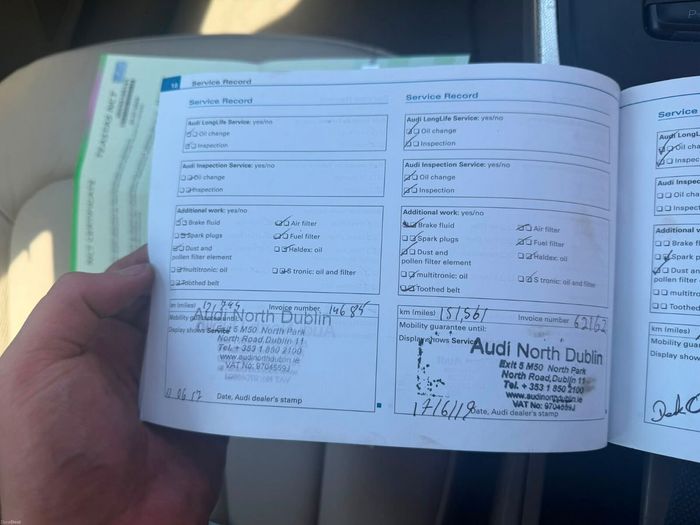 18 Service Record
Service Record
Audi LongLife Service: yes/no
Oil change
Inspection
Audi Inspection Service: yes/no
Oil change
Inspection
Additional work: yes/no
Brake fluid
Air filter
Spark plugs
Fuel filter
Dust and
pollen filter element
Haldex: oil
multitronic: oil
S tronic: oil and filter
Toothed belt
km (miles)
Invoice number 14685
Mobility guarantee until:
Display shows Service
Audi North Dublin
Exit 5 M50 North Park
North Road Dublin 11
Tel. + 353 1 850 2100
www.audinorthdublin.ie
VAT No: 9704559J
Date, Audi dealer's stamp
Service Record
Audi LongLife Service: yes/no
Oil change
Inspection
Audi Inspection Service: yes/no
Oil change
Inspection
Additional work: yes/no
Brake fluid
Air filter
Spark plugs
Fuel filter
Dust and
pollen filter element
Haldex: oil
multitronic: oil
S tronic: oil and filter
Toothed belt
km (miles) 151,561
Invoice number 62162
Mobility guarantee until:
Display shows Service
Audi North Dublin
Exit 5 M50 North Park
North Road, Dublin 11
Tel. + 353 1 850 2100
www.audinorthdublin.ie
VAT No: 9704559J
17/6/19 Date, Audi dealer's stamp
Service
Audi LongL
Oil cha
Inspec
Audi Inspec
Oil cha
Inspect
Additional w
Brake fl
Spark p
Dust an
pollen filter
multitr
Toothed
km (miles)
Mobility gua
Display show